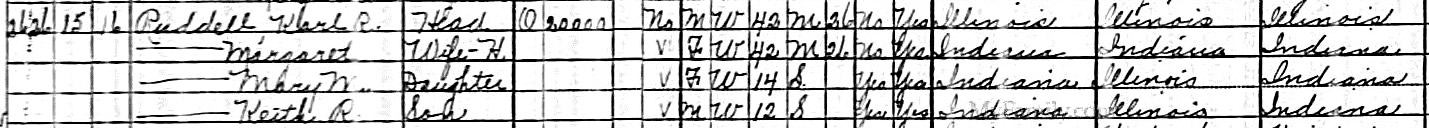 2626 15 16 Ruddell Karl R. Head O 20000 No M W 42 M 26 No Yes Illinois Illinois Illinois
—— Margaret Wife-H. V F W 42 M 26 No Yes Indiana Indiana Indiana
—— Mary N. Daughter V F W 14 S Yes Yes Indiana Illinois Indiana
—— Keith R. Son V M W 12 S Yes Yes Indiana Illinois Indiana